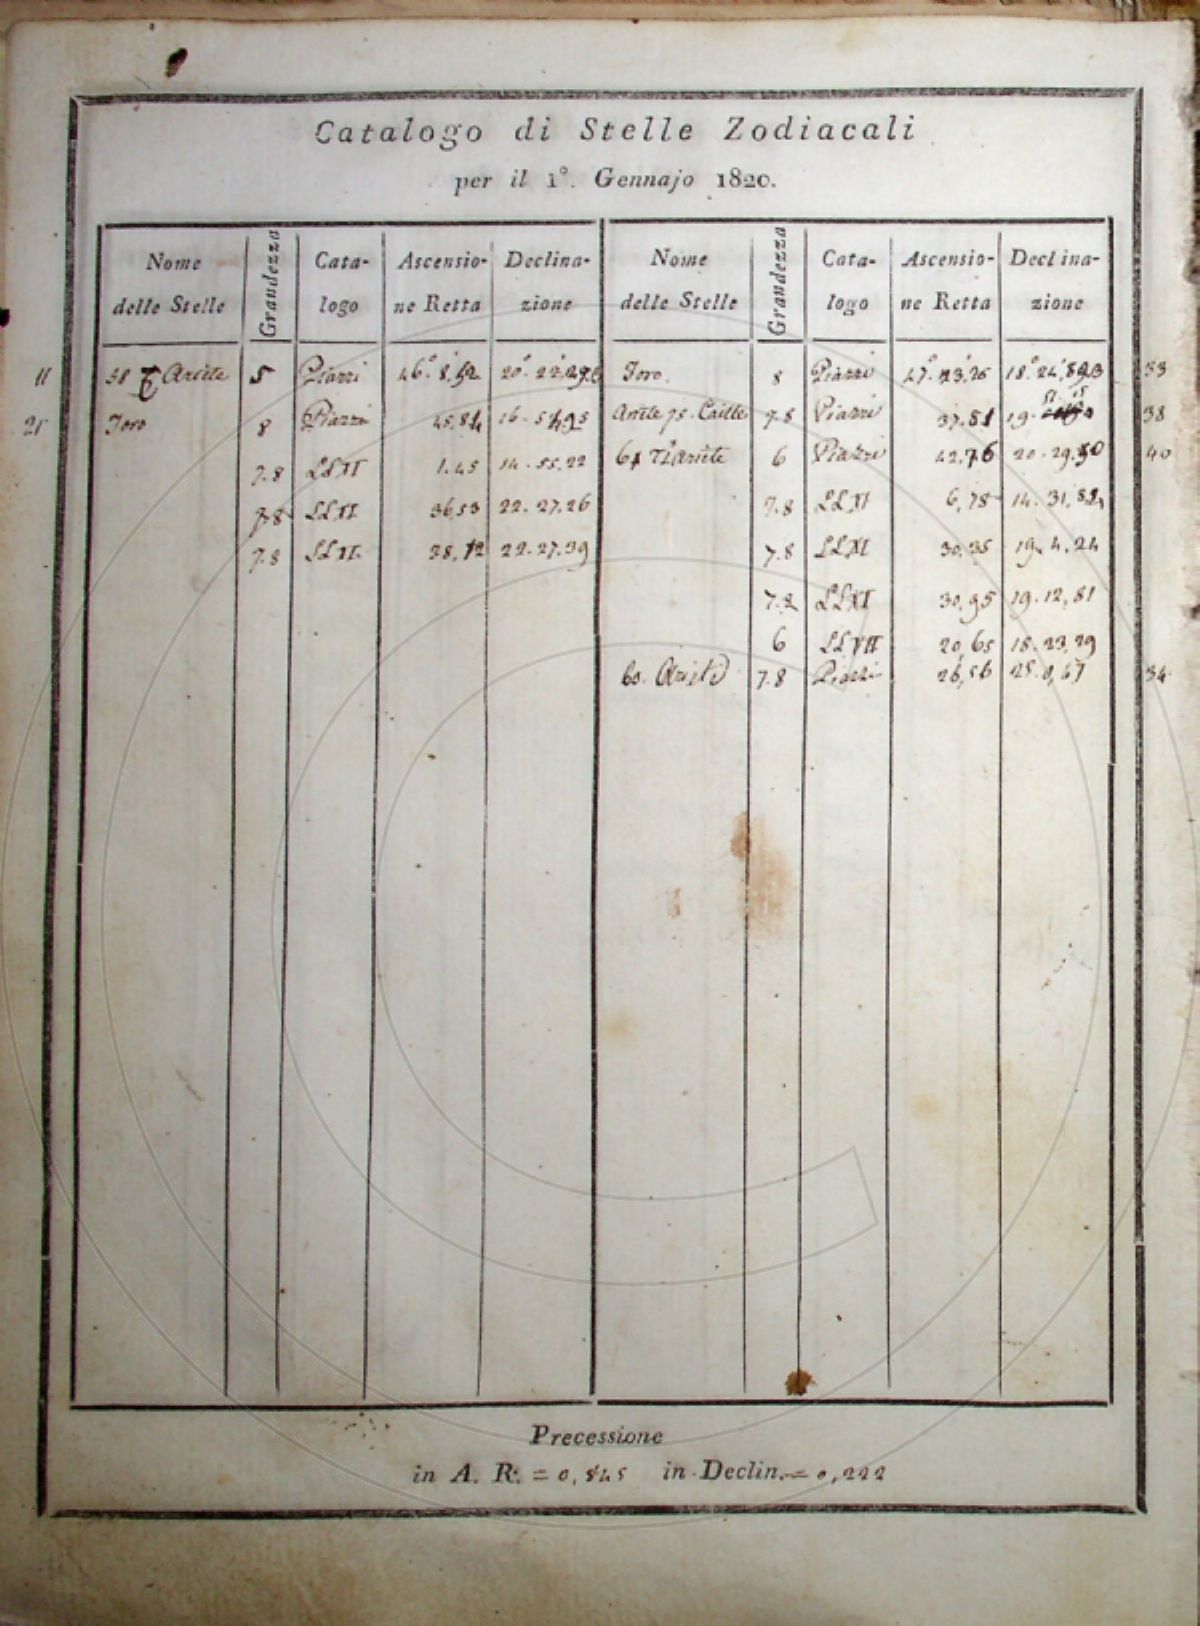 Catalogo di Stelle Zodiacali
per il 1°. Gennajo 1820.
Nome delle Stelle Grandezza Cata-logo Ascensio-ne Retta Declina-zione Nome delle Stelle Grandezza Cata-logo Ascensio-ne Retta Declina-zione
11 Ariete 5 Piazzi 46°. 8,52 20°. Toro. 8 Piazzi 18°. 33
21 Toro 8 Piazzi 45,84 Ariete 75. Caille 7.8 Piazzi 37.81 38
7.8 LLXI 1.45 14.55.22 Ariete 6 Piazzi 42,76 40
7.8 LLXI 36,53 22.27.26 7.8 LLXI 6,78 14.31,82
7.8 LLXI 38,12 22.27.39 7.8 LLXI 30,35 19.4.24
7.8 LLXI 30,95 19.12,81
6 LLVII 20,65 18.23,29
60. Ariete 7.8 Piazzi 26,56 25.0,67 34
Precessione
in A. R. = 0,845 in Declin. = 0,222